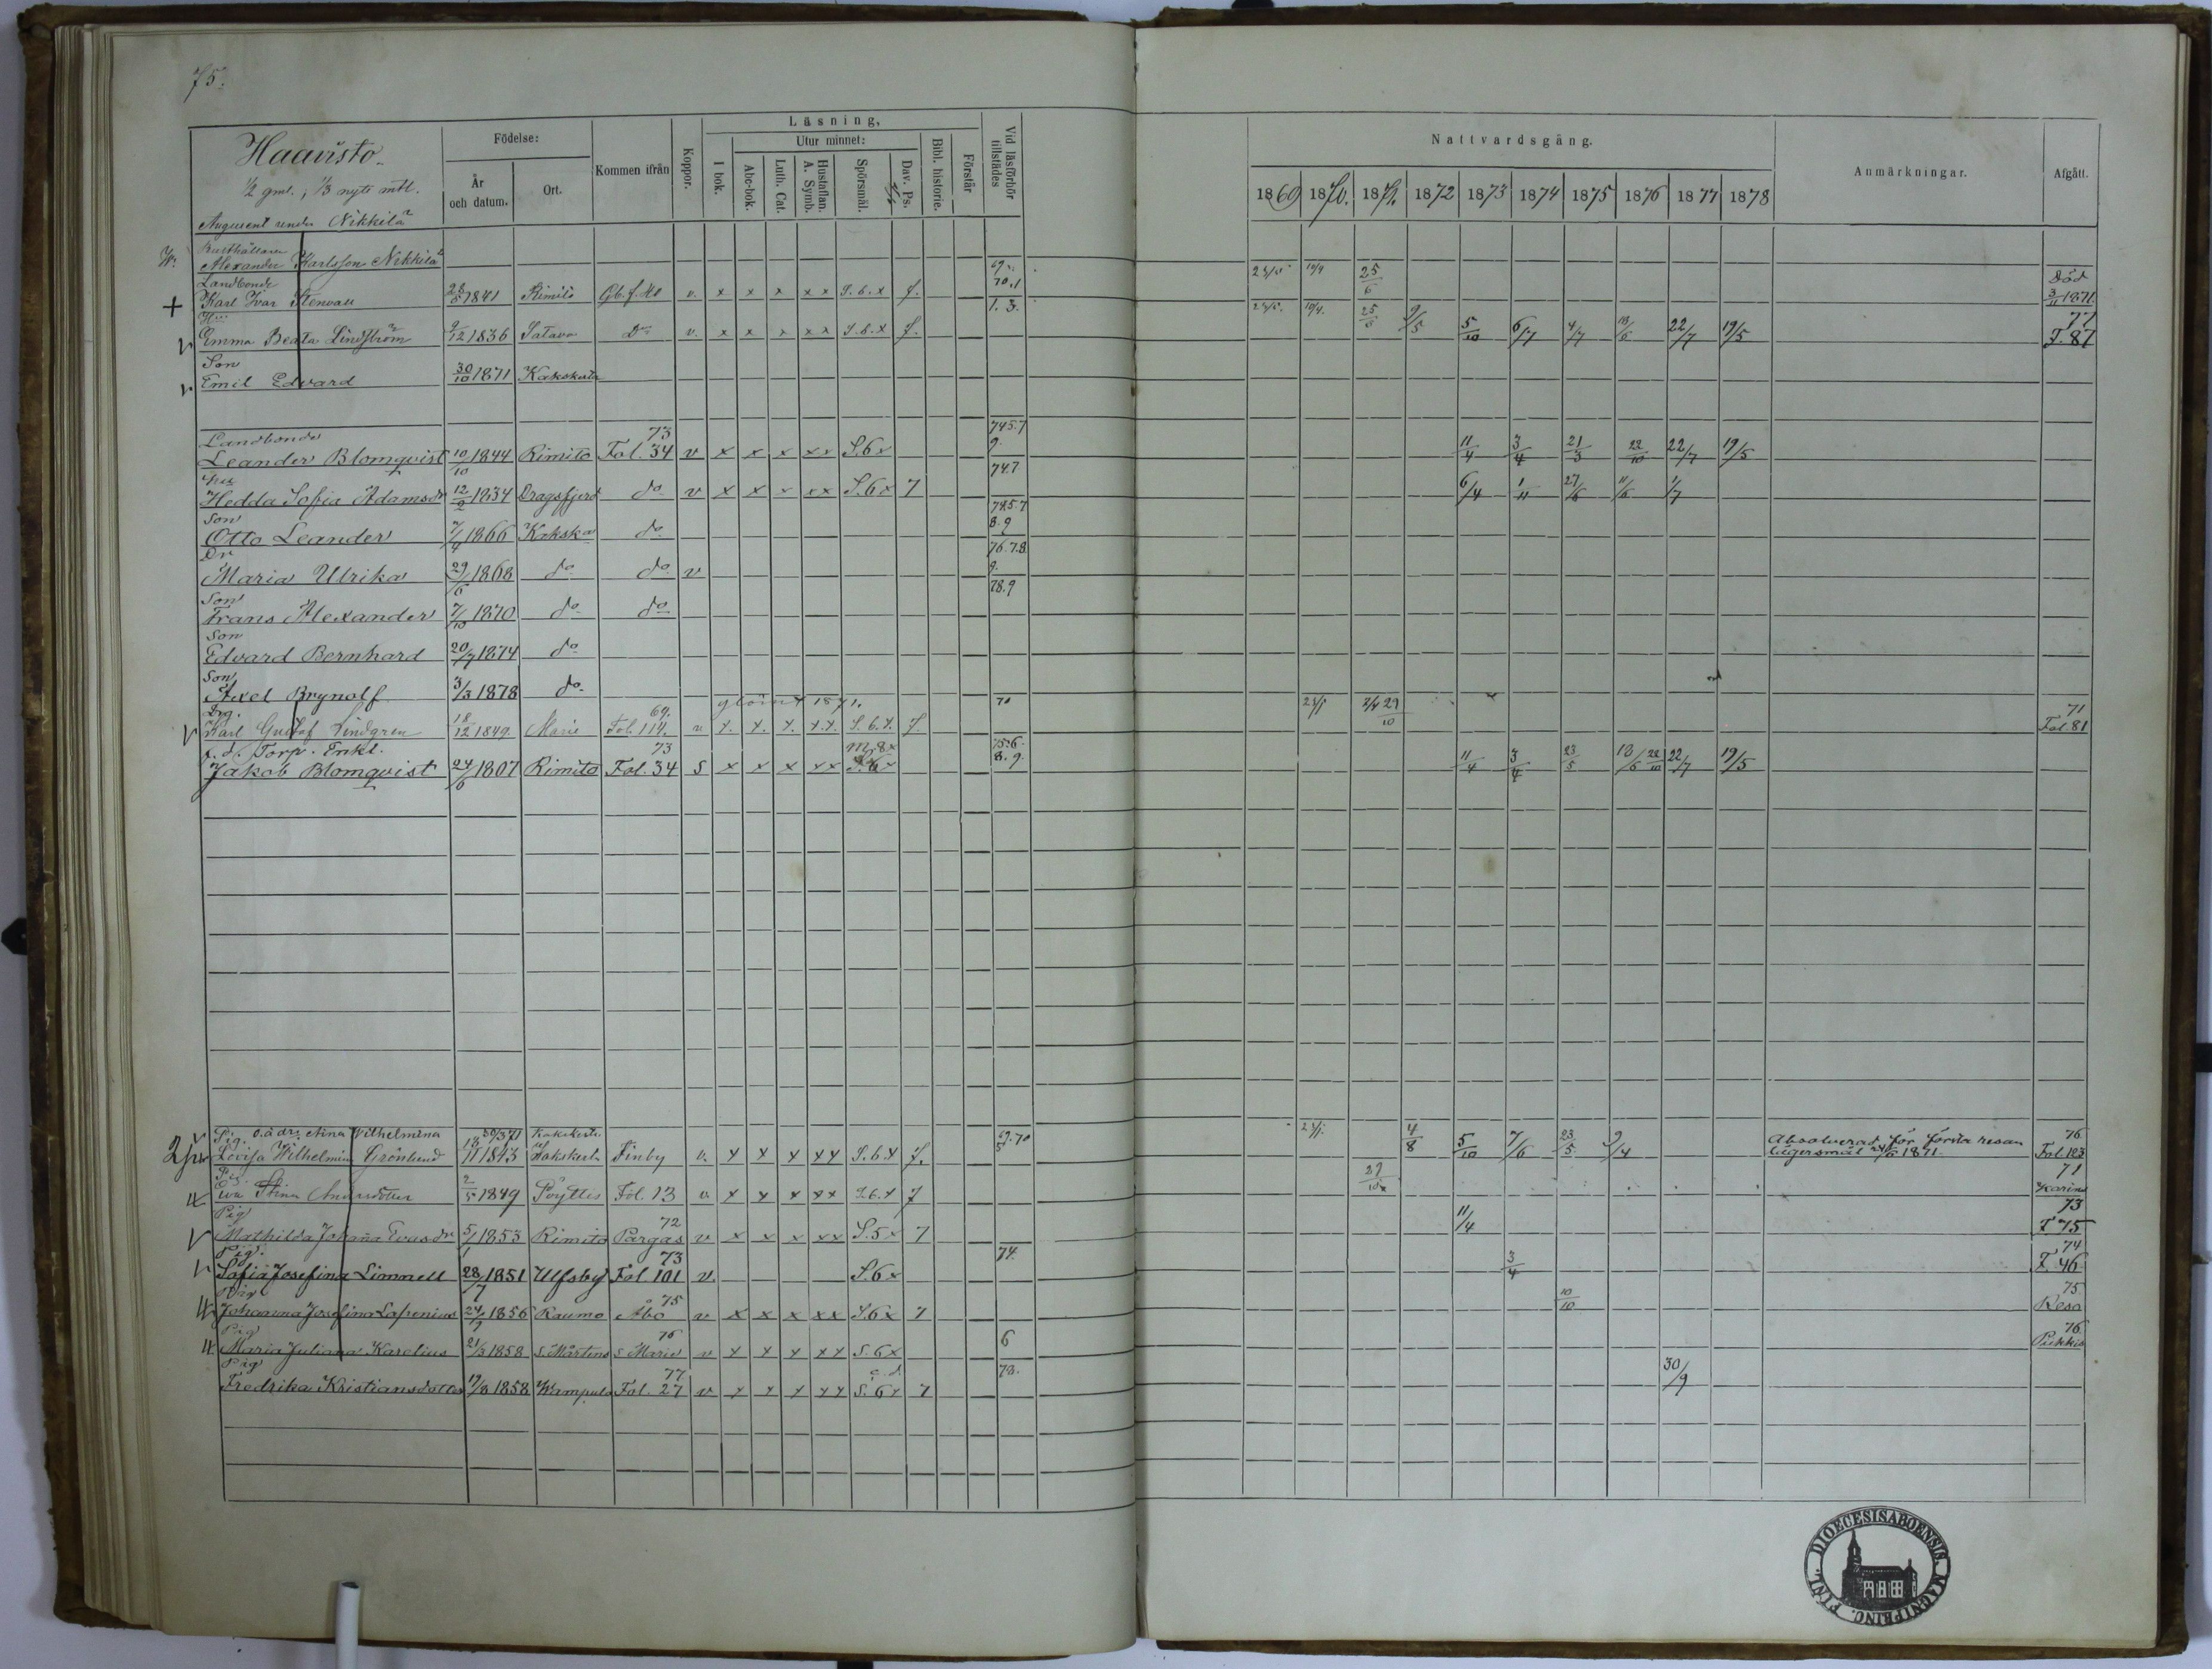 75.
Haavisto.
1/2 gml., 1/3 nytt mtl.
Augment under Nikkilä
Födelse:
År och datum.
Ort.
Kommen ifrån
Koppor.
Läsning,
I bok.
Utur minnet:
Abc-bok.
Luth. Cat.
Hustaflan. A. Symb.
Spörsmål.
Dav. Ps.
Bibl. historie.
Förstår
Vid läsförhör tillstädes
Nattvardsgång.
1869 1870. 1871. 1872 1873 1874 1875 1876 1877 1878
Anmärkningar.
Afgått.
Alexander Karlsson Nikkilä
Landbonde 69. 70.1 Död
Karl Ivar Stenvall 23/5 1841 Rimito Gb. f. 40 v. x x x x x S.6.x f. 25/6 3/11 1871
Emma Beata Lindström 9/12 1836 Satava Do v. x x x x x S.6.x f. 1.3. 25/6 9/5 5/10 6/7 4/7 18/6 22/7 19/5 77 F. 87
Son
Emil Edvard 30/10 1871 Kakskerta
Landbonde 73 745.7
Leander Blomqvist 10/10 1844 Rimito Fol. 34 v x x x x x S.6x 9. 11/4 3/4 21/3 22/10 22/7 19/5
Hu 747
Hedda Sofia Adamsdr 12/2 1834 Dragsfjerd do v x x x x x S.6x 7 6/4 1/11 27/6 11/6 1/7
Son 745.7
Otto Leander 7/4 1866 Kakska do 8.9
Dr 76.7.8
Maria Ulrika 29/6 1868 do do v 9.
Son 78.9
Frans Alexander 7/10 1870 do do
Son
Edvard Bernhard 20/7 1874 do
Son
Axel Brynolf 3/3 1878 do
Drg. 69. glömt 1871. 70 71
Karl Gustaf Lindgren 18/12 1849 Marie Fol. 114. v x. x. x. x.x. S.6.x. f. 29/10 Fol. 81
f. d. Torp. Enkl. 73 75.6.
Jakob Blomqvist 24/6 1807 Rimito Fol. 34 S x x x x x S.6x 8.9. 11/4 3/4 23/5 18/6 22/10 22/7 19/5
Pig. o.ä. dr. Nina Wilhelmina Kakskerta 69.70 76
Lovisa Wilhelmin Grönlund 18/11 1843 Kakskerta Finby v. x x x x x S.6.x f. 4/8 5/10 7/6 23/5 9/4 Absolverad för första resan lägersmål 24/6 1871. Fol. 123
Pig. 71
Eva Stina Andersdotter 2/5 1849 Pöyttis Fol. 13 v. x x x x x S.6.x 7 29/10 Karins
Pig 72 73
Mathilda Johanna Evasdr 5/1 1853 Rimito Pargas v x x x x x S.5x 7 11/4 F 75
Pig. 73 74. 74
Sofia Josefina Limnell 28/7 1851 Ulfsby Fol. 101 v. S.6x 3/4 F. 46
Pig 75 75
Johanna Josefina Lafrenius 24/9 1856 Raumo Åbo v x x x x x S.6x 7 10/10 Reso
Pig 76 6 76
Maria Juliana Karelius 21/3 1858 S. Mårtens S. Marie v x x x x x S.6x Pikkis
Pig 77 78.
Fredrika Kristiansdotter 17/8 1858 Wampula Fol. 27 v x x x x x S.6x 7 30/9
DIOECESIS ABOENSIS. MAGNI PRINC. FINL.